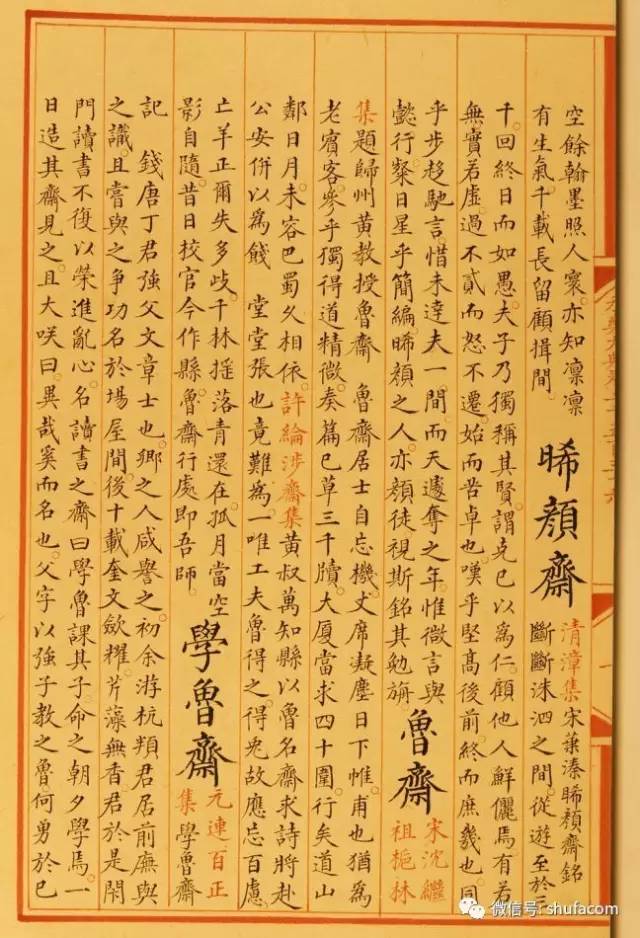 空餘翰墨照人寰亦知凜凜
有生氣千載長留顧揖間
睎顏齋
清漳集宋葉溱睎顏齋銘
斷斷洙泗之間從遊至於三
千回終日而如愚夫子乃獨稱其賢謂克已以為仁顧他人鮮儷焉有若
無實若虛過不貳而怒不遷始而苦卓也嘆乎堅髙後前終而庶幾也同
乎步趍馳言惜未達夫一間而天遽奪之年惟微言與
懿行粲日星乎簡編睎顏之人亦顏徒視斯銘其勉旃
魯齋
宋沈繼
祖梔林
集題歸州黃教授魯齋 魯齋居士自忘機丈席凝塵日下帷甫也猶為
老賓客參乎獨得道精微奏篇已草三千牘大厦當求四十圍行矣道山
鄰日月未容巴蜀久相依許綸涉齋集黃叔萬知縣以魯名齋求詩將赴
公安併以為餞 堂堂張也竟難為一唯工夫魯得之得兔故應忘百慮
亡羊正爾失多歧千林揺落青還在孤月當空
影自隨昔日校官今作縣魯齋行處即吾師
學魯齋
元連百正
集學魯齋
記 錢唐丁君強父文章士也鄉之人咸譽之初余游杭頖君居前廡與
之識且嘗與之爭功名於場屋間後十載奎文歛耀芹藻無香君於是閑
門讀書不復以榮進亂心名讀書之齋曰學魯課其子命之朝夕學焉一
日造其齋見之且大咲曰異哉奚而名也父字以強子教之魯何勇於已
微信号: shufacom